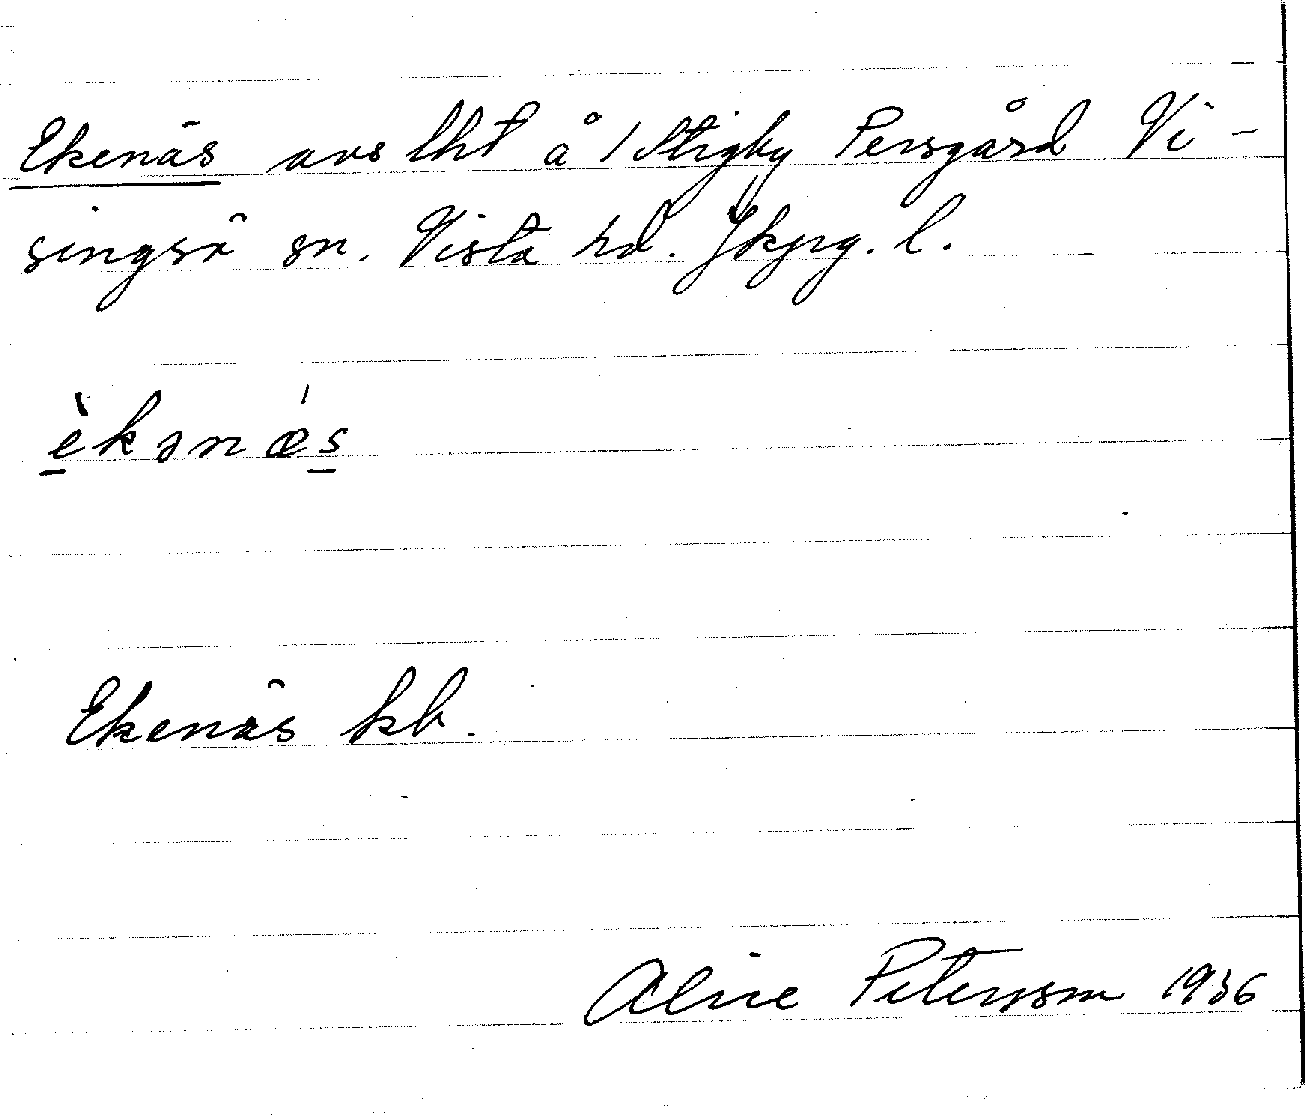 Ekenäs avs lht å 1 Stigby Persgård Vi-
singsö sn. Vista hd. Jkpg. l.
èkənǽs
Ekenäs kb.
Aline Petersson 1936